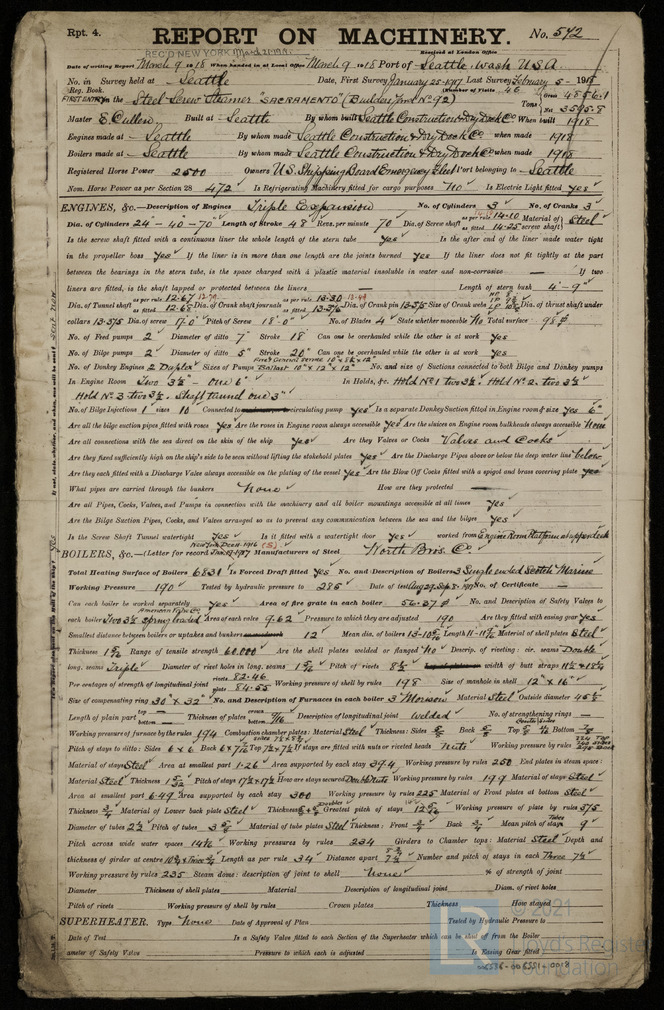 Rpt. 4. REPORT ON MACHINERY. No. 572
REC'D NEW YORK March 21-1918. Received at London Office
Date of writing Report March 9 1918 When handed in at Local Office March 9 1918 Port of Seattle Wash U.S.A.
No. in Survey held at Seattle Date, First Survey January 25-1917 Last Survey February 5- 1918
Reg. Book. (Number of Visits 46
FIRST ENTRY on the Steel Screw Steamer "SACRAMENTO" (Builders Yard No 92) Tons Gross 4856.1 Net 3595.8
Master E Cullen Built at Seattle By whom built Seattle Construction & Dry Dock Co When built 1918
Engines made at Seattle By whom made Seattle Construction & Dry Dock Co when made 1918
Boilers made at Seattle By whom made Seattle Construction & Dry Dock Co when made 1918
Registered Horse Power 2500 Owners U.S. Shipping Board Emergency Fleet Port belonging to Seattle
Nom. Horse Power as per Section 28 472 Is Refrigerating Machinery fitted for cargo purposes No Is Electric Light fitted Yes
ENGINES, &c.—Description of Engines Triple Expansion No. of Cylinders 3 No. of Cranks 3
Dia. of Cylinders 24 - 40 - 70" Length of Stroke 48" Revs. per minute 70 Dia. of Screw shaft as per rule 14-10 as fitted 14-25 Material of screw shaft Steel
Is the screw shaft fitted with a continuous liner the whole length of the stern tube Yes Is the after end of the liner made water tight
in the propeller boss Yes If the liner is in more than one length are the joints burned Yes If the liner does not fit tightly at the part
between the bearings in the stern tube, is the space charged with a plastic material insoluble in water and non-corrosive — If two
liners are fitted, is the shaft lapped or protected between the liners — Length of stern bush 4'-9"
Dia. of Tunnel shaft as per rule 12-67 as fitted 12-68 Dia. of Crank shaft journals as per rule 13-30 as fitted 13-376 Dia. of Crank pin 13-375 Size of Crank webs Dia. of thrust shaft under
collars 13-375 Dia. of screw 17-0" Pitch of Screw 18'-0" No. of Blades 4 State whether moveable No Total surface 98
No. of Feed pumps 2 Diameter of ditto 7" Stroke 18 Can one be overhauled while the other is at work Yes
No. of Bilge pumps 2 Diameter of ditto 5" Stroke 20" Can one be overhauled while the other is at work Yes
No. of Donkey Engines 2 Duplex Sizes of Pumps Fire & General service 10" x 8½" x 12" Ballast 10" x 12" x 12" No. and size of Suctions connected to both Bilge and Donkey pumps
In Engine Room Two 3½" - One 6" In Holds, &c. Hold No 1 two 3½, Hold No 2. two 3½
Hold No. 3 two 3½. Shaft tunnel one 3"
No. of Bilge Injections 1 sizes 10 Connected to circulating pump Yes Is a separate Donkey Suction fitted in Engine room & size Yes 6"
Are all the bilge suction pipes fitted with roses Yes Are the roses in Engine room always accessible Yes Are the sluices on Engine room bulkheads always accessible None
Are all connections with the sea direct on the skin of the ship Yes Are they Valves or Cocks Valves and Cocks
Are they fixed sufficiently high on the ship's side to be seen without lifting the stokehold plates Yes Are the Discharge Pipes above or below the deep water line below
Are they each fitted with a Discharge Valve always accessible on the plating of the vessel Yes Are the Blow Off Cocks fitted with a spigot and brass covering plate Yes
What pipes are carried through the bunkers None How are they protected —
Are all Pipes, Cocks, Valves, and Pumps in connection with the machinery and all boiler mountings accessible at all times Yes
Are the Bilge Suction Pipes, Cocks, and Valves arranged so as to prevent any communication between the sea and the bilges Yes
Is the Screw Shaft Tunnel watertight Yes Is it fitted with a watertight door Yes worked from Engine Room Platform and upper deck
BOILERS, &c.—(Letter for record (S)) Manufacturers of Steel Worth Bros. Co
Total Heating Surface of Boilers 6831 Is Forced Draft fitted Yes No. and Description of Boilers 3 Single ended Scotch Marine
Working Pressure 190 Tested by hydraulic pressure to 285 Date of test Aug 29, Sep 8-1917 No. of Certificate —
Can each boiler be worked separately Yes Area of fire grate in each boiler 56.27 No. and Description of Safety Valves to
each boiler Two 3½ spring loaded Area of each valve 9.62 Pressure to which they are adjusted 190 Are they fitted with easing gear Yes
Smallest distance between boilers or uptakes and bunkers 12" Mean dia. of boilers Length Material of shell plates Steel
Thickness Range of tensile strength 60.000 Are the shell plates welded or flanged No Descrip. of riveting: cir. seams Double
long. seams Triple Diameter of rivet holes in long. seams Pitch of rivets width of butt straps
Per centages of strength of longitudinal joint rivets 82-46 plate 84-55 Working pressure of shell by rules 198 Size of manhole in shell 12" x 16"
Size of compensating ring 30" x 32" No. and Description of Furnaces in each boiler 3 Morison Material Steel Outside diameter
Length of plain part top — bottom — Thickness of plates Description of longitudinal joint welded No. of strengthening rings —
Working pressure of furnace by the rules 194 Combustion chamber plates: Material Steel Thickness: Sides Back Top Bottom
Pitch of stays to ditto: Sides 6 x 6 Back Top If stays are fitted with nuts or riveted heads Nuts Working pressure by rules
Material of stays Steel Area at smallest part 1-26 Area supported by each stay 39.4 Working pressure by rules 250 End plates in steam space:
Material Steel Thickness Pitch of stays How are stays secured Double Nuts Working pressure by rules 199 Material of stays Steel
Area at smallest part 6-49 Area supported by each stay 300 Working pressure by rules 225 Material of Front plates at bottom Steel
Thickness ¾ Material of Lower back plate Steel Thickness Greatest pitch of stays Working pressure of plate by rules 575
Diameter of tubes 2½ Pitch of tubes Material of tube plates Steel Thickness: Front ¾ Back ¾ Mean pitch of stays 9"
Pitch across wide water spaces 14½ Working pressures by rules 234 Girders to Chamber tops: Material Steel Depth and
thickness of girder at centre Length as per rule 34 Distance apart Number and pitch of stays in each Three 7½
Working pressure by rules 235 Steam dome: description of joint to shell None % of strength of joint
Diameter Thickness of shell plates Material Description of longitudinal joint Diam. of rivet holes
Pitch of rivets Working pressure of shell by rules Crown plates Thickness How stayed
SUPERHEATER. Type None Date of Approval of Plan Tested by Hydraulic Pressure to
Date of Test Is a Safety Valve fitted to each Section of the Superheater which can be shut off from the Boiler
ameter of Safety Valve Pressure to which each is adjusted Is Easing Gear fitted
© 2021 Lloyd's Register Foundation
006536-006551-0018